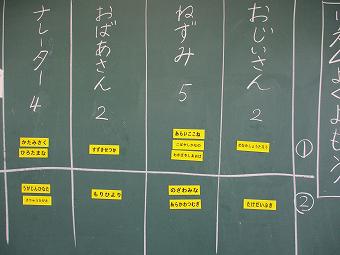 おじいさん 2
ねずみ 5
おばあさん 2
ナレーター 4
①
あらいここね
すずきせつか
かたみさく
ひろたまな
②
たけだいぶき
のざわみな
あらかわつむぎ
もりひより
うがじんひなた